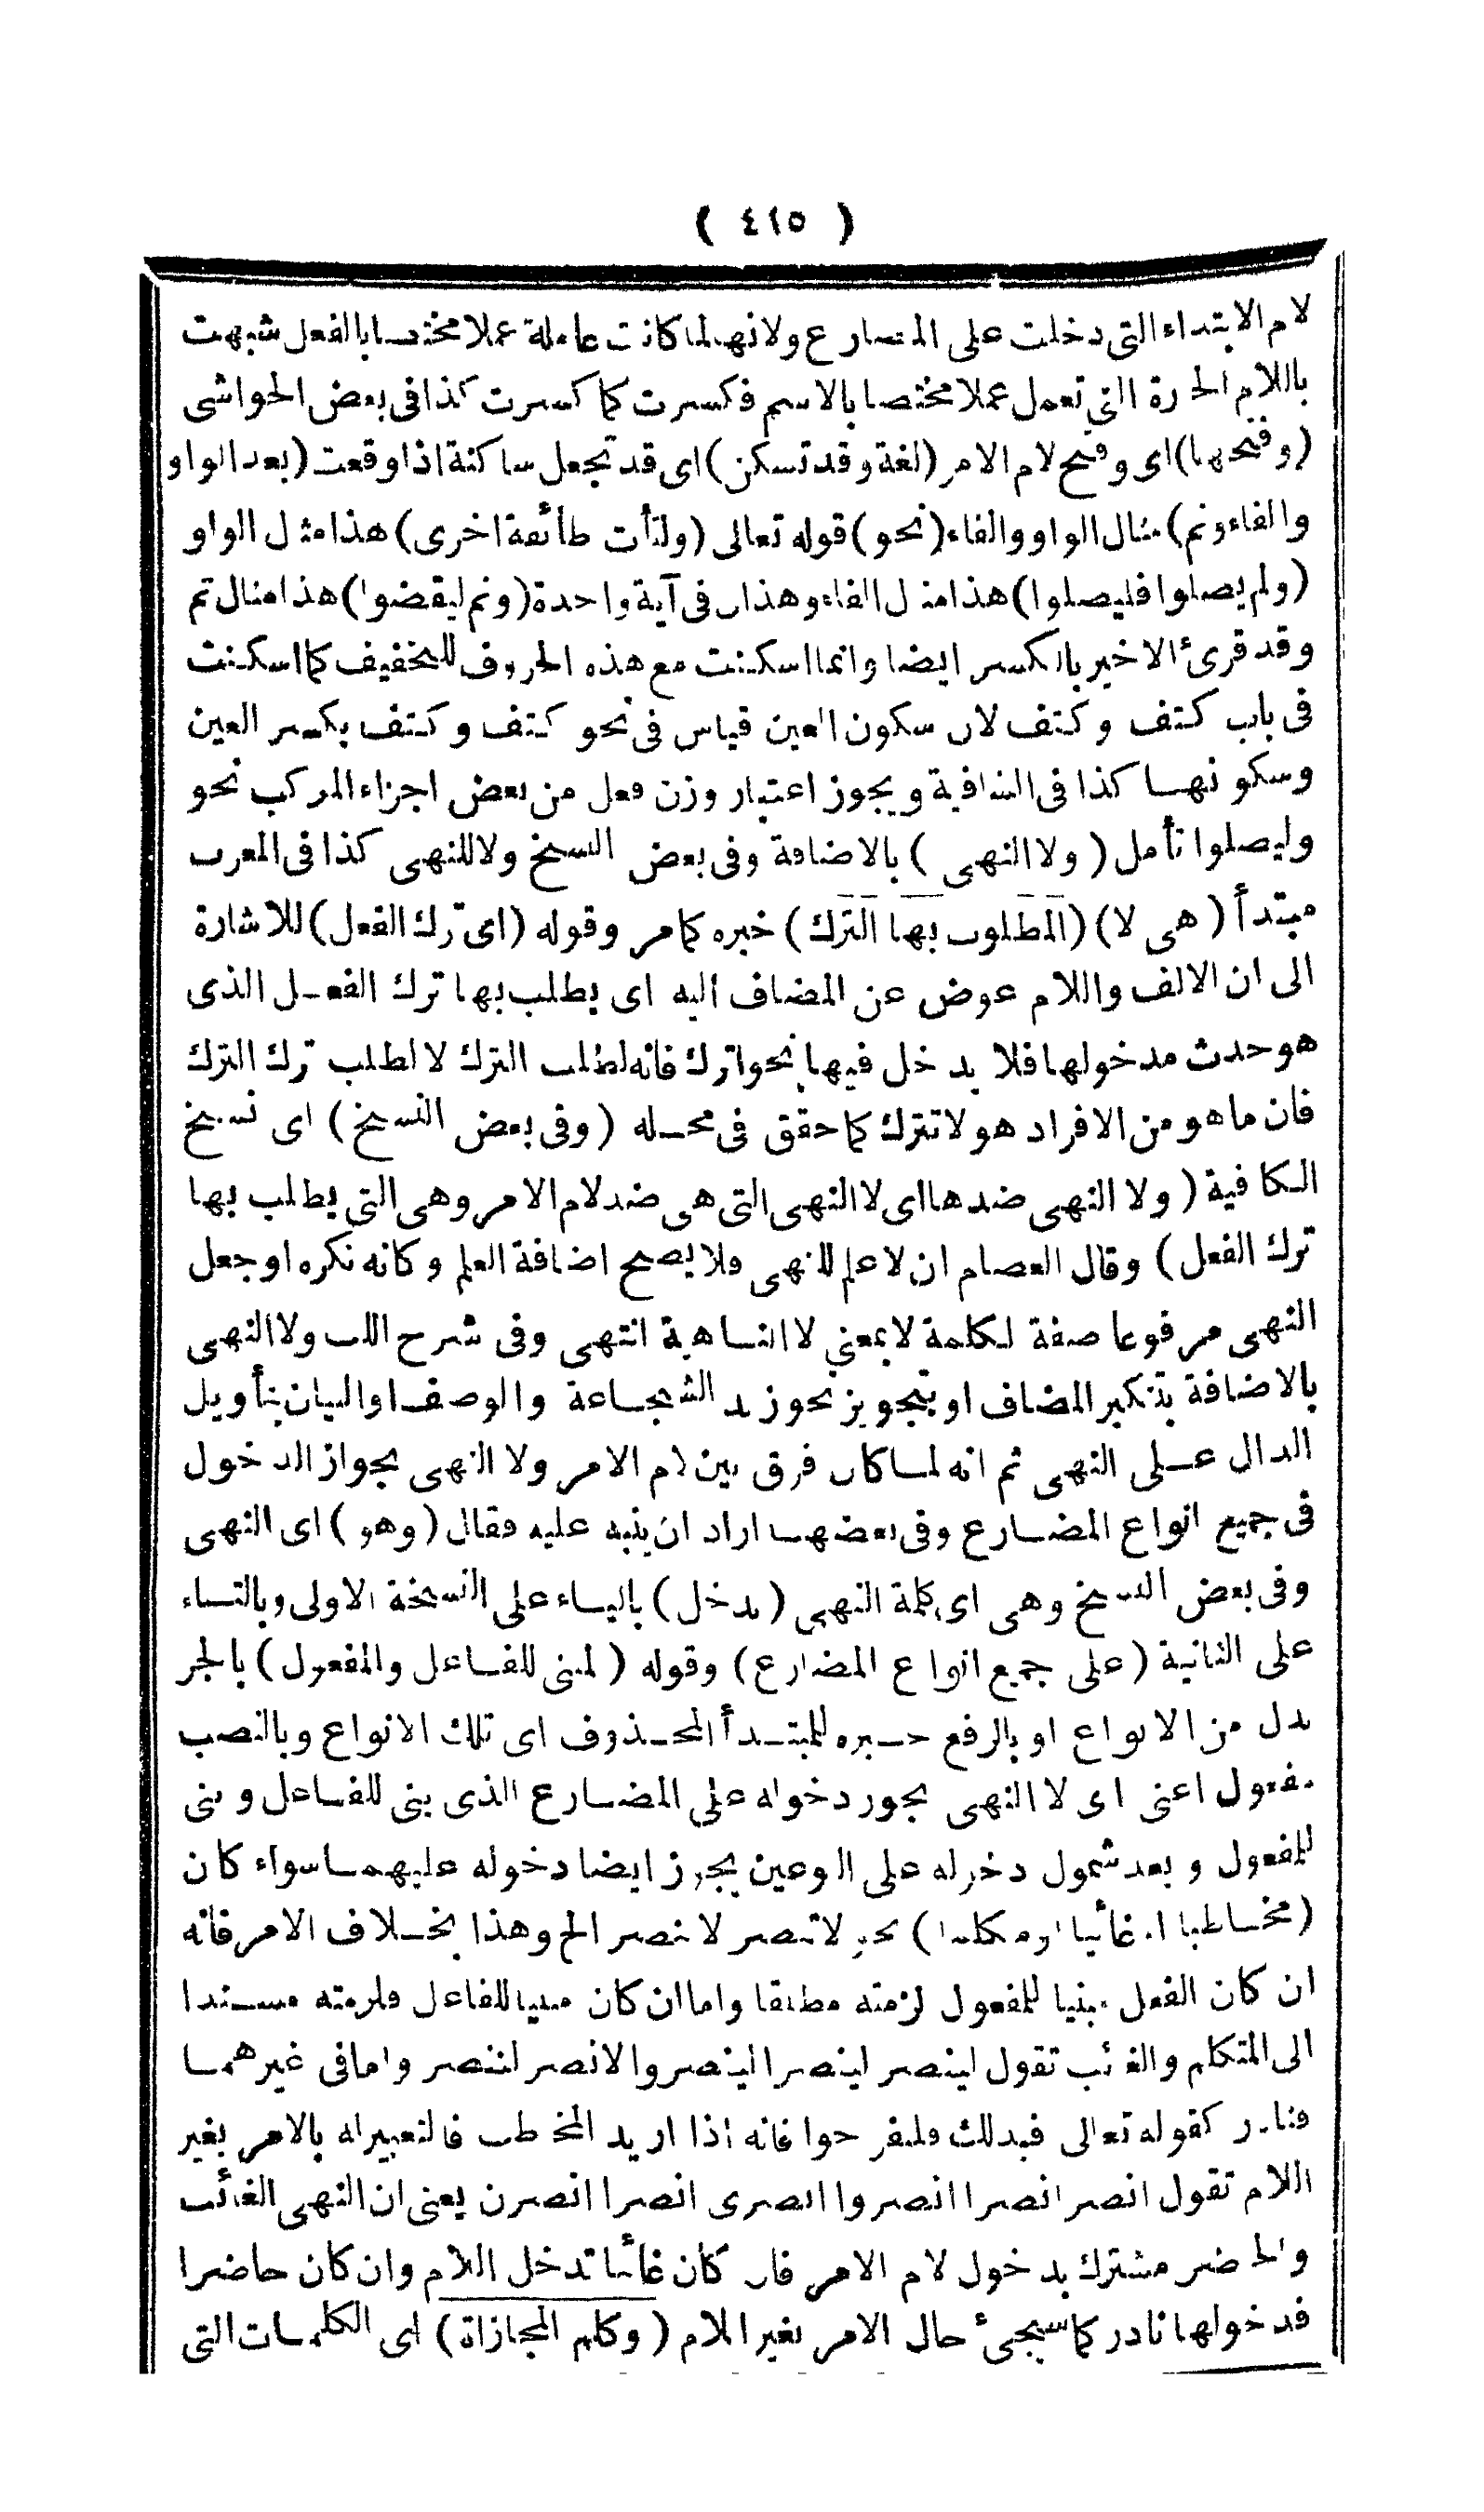 ( ٤١٥ )
لام الابتداء التى دخلت على المضارع ولانها لما كانت عاملة عملا مختصا بالفعل شبهت
باللام الجارة التى تعمل عملا مختصا بالاسم فكسرت كما كسرت كذا فى بعض الحواشى
(وفتحها) اى وفتح لام الامر (لغة وقد تسكن) اى قد تجعل ساكنة اذا وقعت (بعد الواو
والفاء وثم) مثال الواو والفاء (نحو) قوله تعالى (ولتأت طائفة اخرى) هذا مثال الواو
(ولم يصلوا فليصلوا) هذا مثال الفاء وهذان فى آية واحدة (وثم ليقضوا) هذا مثال ثم
وقد قرئ الاخير بالكسر ايضا وانما اسكنت مع هذه الحروف للتخفيف كما اسكنت
فى باب كتف وكتف لان سكون العين قياس فى نحو كتف وكتف بكسر العين
وسكونها كذا فى الشافية ويجوز اعتبار وزن فعل من بعض اجزاء المركب نحو
وليصلوا تأمل (ولا النهى) بالاضافة وفى بعض النسخ ولا للنهى كذا فى المعرب
مبتدأ (هى لا) (المطلوب بها الترك) خبره كما مر وقوله (اى ترك الفعل) للاشارة
الى ان الالف واللام عوض عن المضاف اليه اى يطلب بها ترك الفعل الذى
هو حدث مدخولها فلا يدخل فيها نحو اترك فانه لطلب الترك لا لطلب ترك الترك
فان ما هو من الافراد هو لا تترك كما حقق فى محله (وفى بعض النسخ) اى نسخ
الكافية (ولا النهى ضدها اى لا النهى التى هى ضد لام الامر وهى التى يطلب بها
ترك الفعل) وقال العصام ان لا علم للنهى فلا يصح اضافة العلم وكانه نكره او جعل
النهى مرفوعا صفة لكلمة لا بمعنى لا الناهية انتهى وفى شرح اللب ولا النهى
بالاضافة بتنكير المضاف او بتجويز نحو زيد الشجاعة والوصف او البيان بتأويل
الدال على النهى ثم انه لما كان فرق بين لام الامر ولا النهى بجواز الدخول
فى جميع انواع المضارع وفى بعضها اراد ان ينبه عليه فقال (وهو) اى النهى
وفى بعض النسخ وهى اى كلمة النهى (يدخل) بالياء على النسخة الاولى وبالتاء
على الثانية (على جميع انواع المضارع) وقوله (لمبنى للفاعل والمفعول) بالجر
بدل من الانواع او بالرفع خبره للمبتدأ المحذوف اى تلك الانواع وبالنصب
مفعول اعنى اى لا النهى يجوز دخوله على المضارع الذى بنى للفاعل وبنى
للمفعول وبعد شمول دخوله على النوعين يجوز ايضا دخوله عليهما سواء كان
(مخاطبا او غائبا او متكلما) نحو لا تنصر لا ننصر الخ وهذا بخلاف الامر فانه
ان كان الفعل مبنيا للمفعول لزمته مطلقا واما ان كان مبنيا للفاعل فلزمته مسندا
الى المتكلم والغائب تقول لينصر لينصرا لينصروا لانصر لننصر واما فى غيرهما
فنادر كقوله تعالى فبذلك فلتفرحوا فانه اذا اريد المخاطب فالتعبير له بالامر بغير
اللام تقول انصر انصرا انصروا انصرى انصرا انصرن يعنى ان النهى الغائب
والحاضر مشترك بدخول لام الامر فان كان غائبا تدخل اللام وان كان حاضرا
فدخولها نادر كما سيجئ حال الامر بغير اللام (وكلم المجازاة) اى الكلمات التى